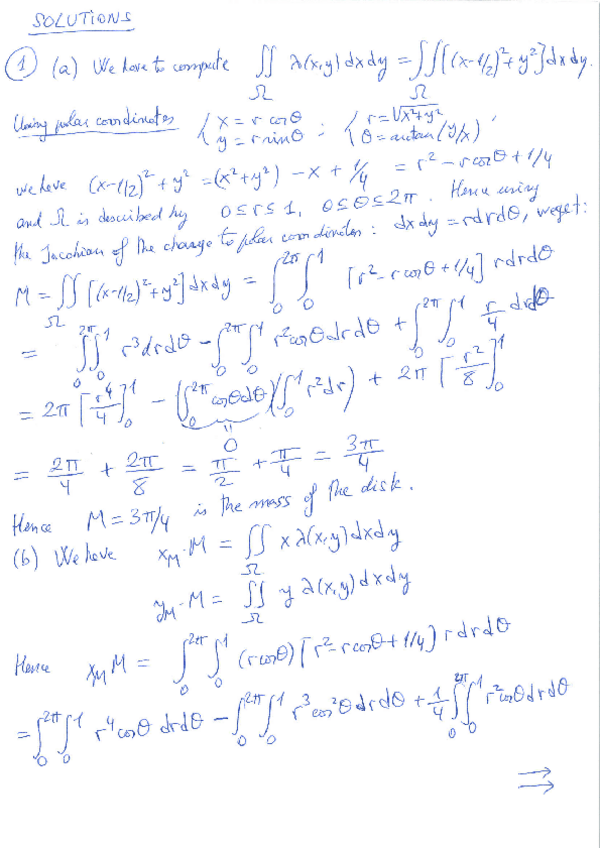 SOLUTIONS
① (a) We have to compute ∬_Ω λ(x,y)dxdy = ∬_Ω [(x-1/2)²+y²]dxdy.
Using polar coordinates { x = r cosθ y = r sinθ : { r = √x²+y² θ = arctan(y/x) ,
we have (x-1/2)²+y² = (x²+y²) - x + 1/4 = r² - r cosθ + 1/4
and Ω is described by 0≤r≤1, 0≤θ≤2π. Hence using
the Jacobian of the change to polar coordinates: dxdy = rdrdθ, we get:
M = ∬_Ω [(x-1/2)²+y²]dxdy = ∫_0^{2π} ∫_0^1 [r² - r cosθ + 1/4] r dr dθ
= ∫_0^{2π} ∫_0^1 r³drdθ - ∫_0^{2π} ∫_0^1 r²cosθdrdθ + ∫_0^{2π} ∫_0^1 r/4 drdθ
= 2π [r⁴/4]_0^1 - (∫_0^{2π} cosθdθ)(∫_0^1 r²dr) + 2π [r²/8]_0^1
=
0
= 2π/4 + 2π/8 = π/2 + π/4 = 3π/4
Hence M = 3π/4 is the mass of the disk.
(b) We have x_M·M = ∬_Ω x λ(x,y)dxdy
y_M·M = ∬_Ω y λ(x,y)dxdy
Hence x_M M = ∫_0^{2π} ∫_0^1 (r cosθ)[r² - r cosθ + 1/4] r dr dθ
= ∫_0^{2π} ∫_0^1 r⁴cosθ drdθ - ∫_0^{2π} ∫_0^1 r³cos²θdrdθ + 1/4 ∫_0^{2π} ∫_0^1 r²cosθdrdθ
⇒